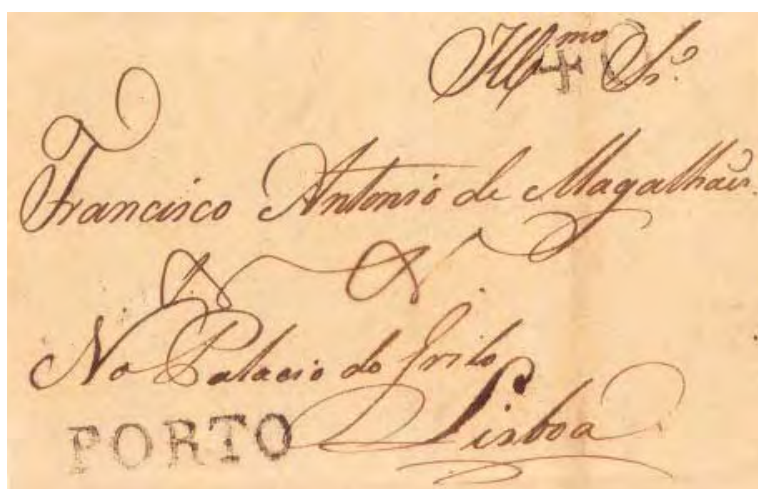 Ill.mo Sr.
40
Francisco Antonio de Magalhães
No Palacio do Grilo
Lisboa
PORTO